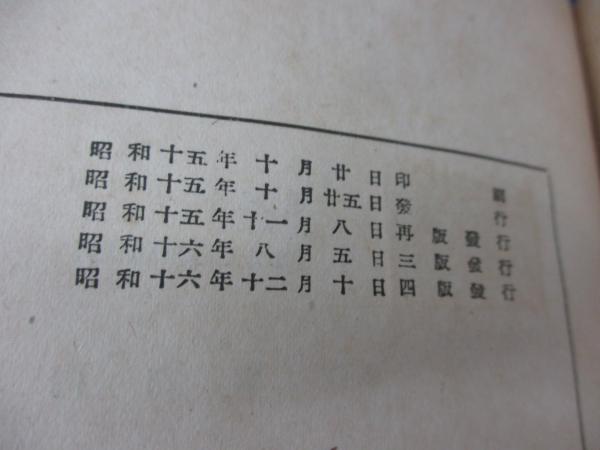 昭和十五年十月廿日印刷
昭和十五年十月廿五日發行
昭和十五年十一月八日再版發行
昭和十六年八月五日三版發行
昭和十六年十二月十日四版發行